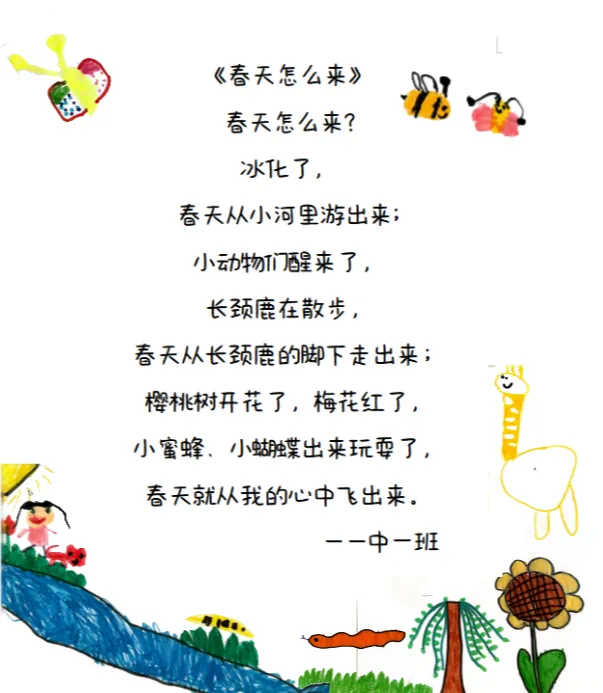 《春天怎么来》
春天怎么来?
冰化了，
春天从小河里游出来；
小动物们醒来了，
长颈鹿在散步，
春天从长颈鹿的脚下走出来；
樱桃树开花了，梅花红了，
小蜜蜂、小蝴蝶出来玩耍了，
春天就从我的心中飞出来。
——中一班